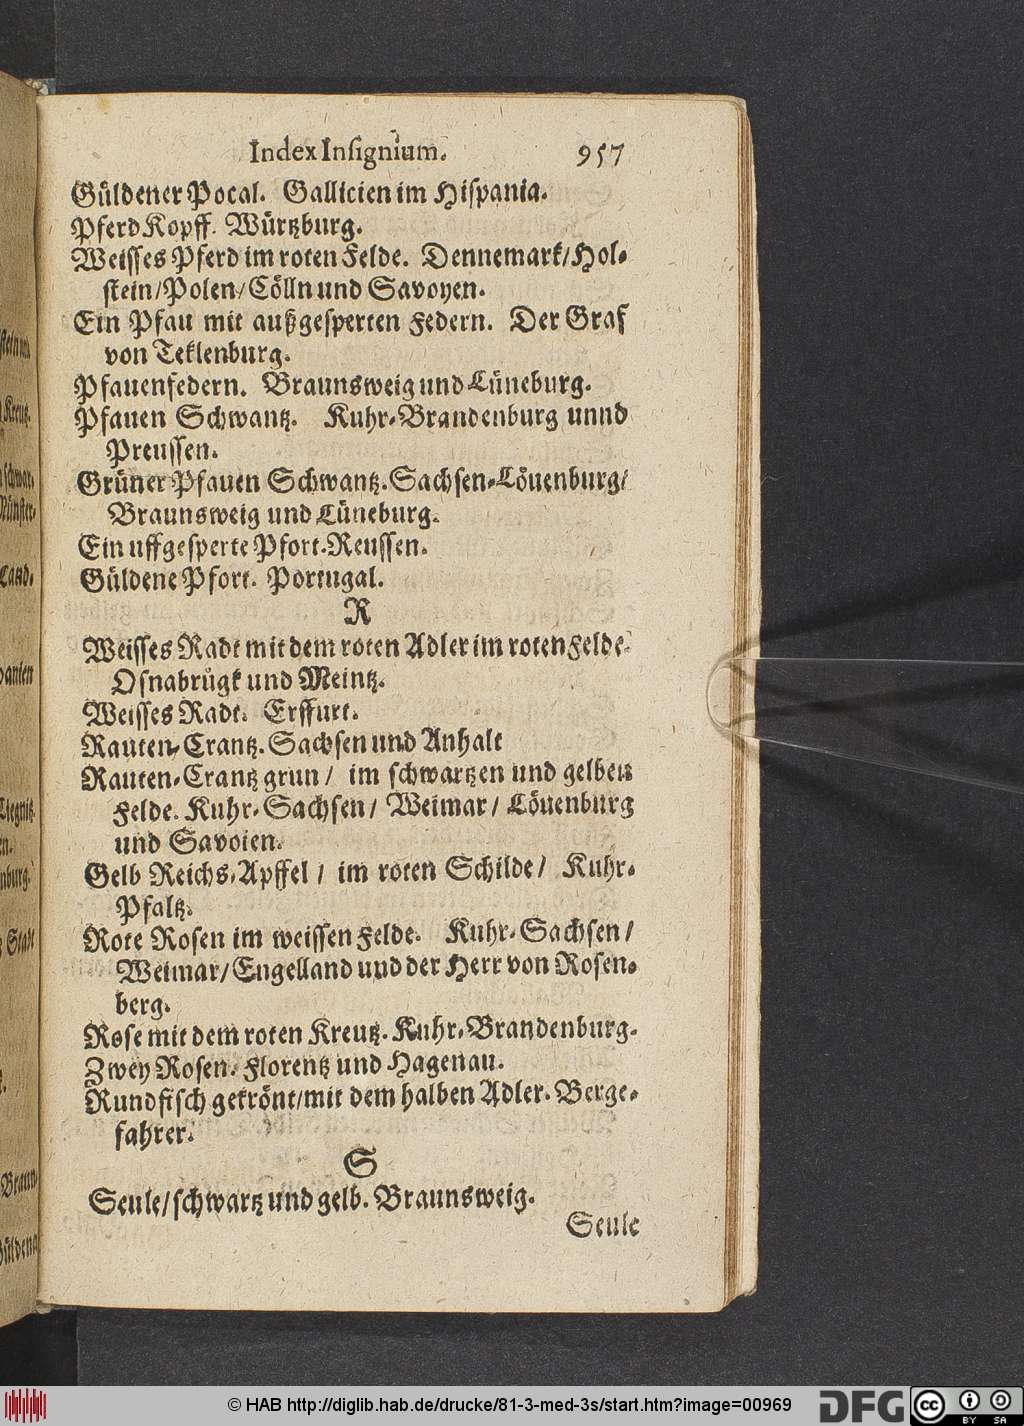 Index Insignium. 957
Güldener Pocal. Gallicien im Hispania.
Pferd Kopff. Würtzburg.
Weisses Pferd im roten Felde. Dennemark/Hol-
stein/Polen/Cölln und Savoyen.
Ein Pfau mit außgesperten Federn. Der Graf
von Teklenburg.
Pfauenfedern. Braunsweig und Lüneburg.
Pfauen Schwantz. Kuhr-Brandenburg unnd
Preussen.
Grüner Pfauen Schwantz. Sachsen-Löuenburg/
Braunsweig und Lüneburg.
Ein uffgesperte Pfort. Reussen.
Güldene Pfort. Portugal.
R
Weisses Radt mit dem roten Adler im roten Felde.
Osnabrügk und Meintz.
Weisses Radt. Erffurt.
Rauten-Crantz. Sachsen und Anhalt
Rauten-Crantz grun/ im schwartzen und gelben
Felde. Kuhr-Sachsen/ Weimar/ Löuenburg
und Savoien.
Gelb Reichs-Apffel/ im roten Schilde/ Kuhr-
Pfaltz.
Rote Rosen im weissen Felde. Kuhr-Sachsen/
Weimar/Engelland und der Herr von Rosen-
berg.
Rose mit dem roten Kreutz. Kuhr-Brandenburg.
Zwey Rosen. Florentz und Hagenau.
Rundfisch gekrönt/mit dem halben Adler. Berge-
fahrer.
S
Seule/schwartz und gelb. Braunsweig.
Seule
© HAB http://diglib.hab.de/drucke/81-3-med-3s/start.htm?image=00969
DFG
cc
BY SA